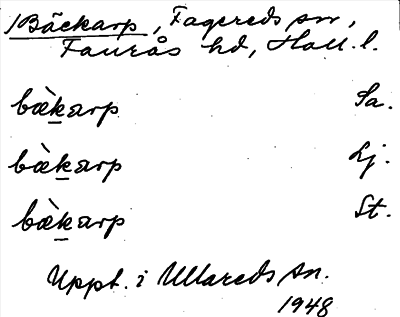 /Bäckarp, Fagereds sn,
Faurås hd, Hall. l.
bæ̀k̲arp Sa.
bæ̀k̲arp Lj.
bæ̀k̲arp St.
Uppt. i Ullareds sn.
1948